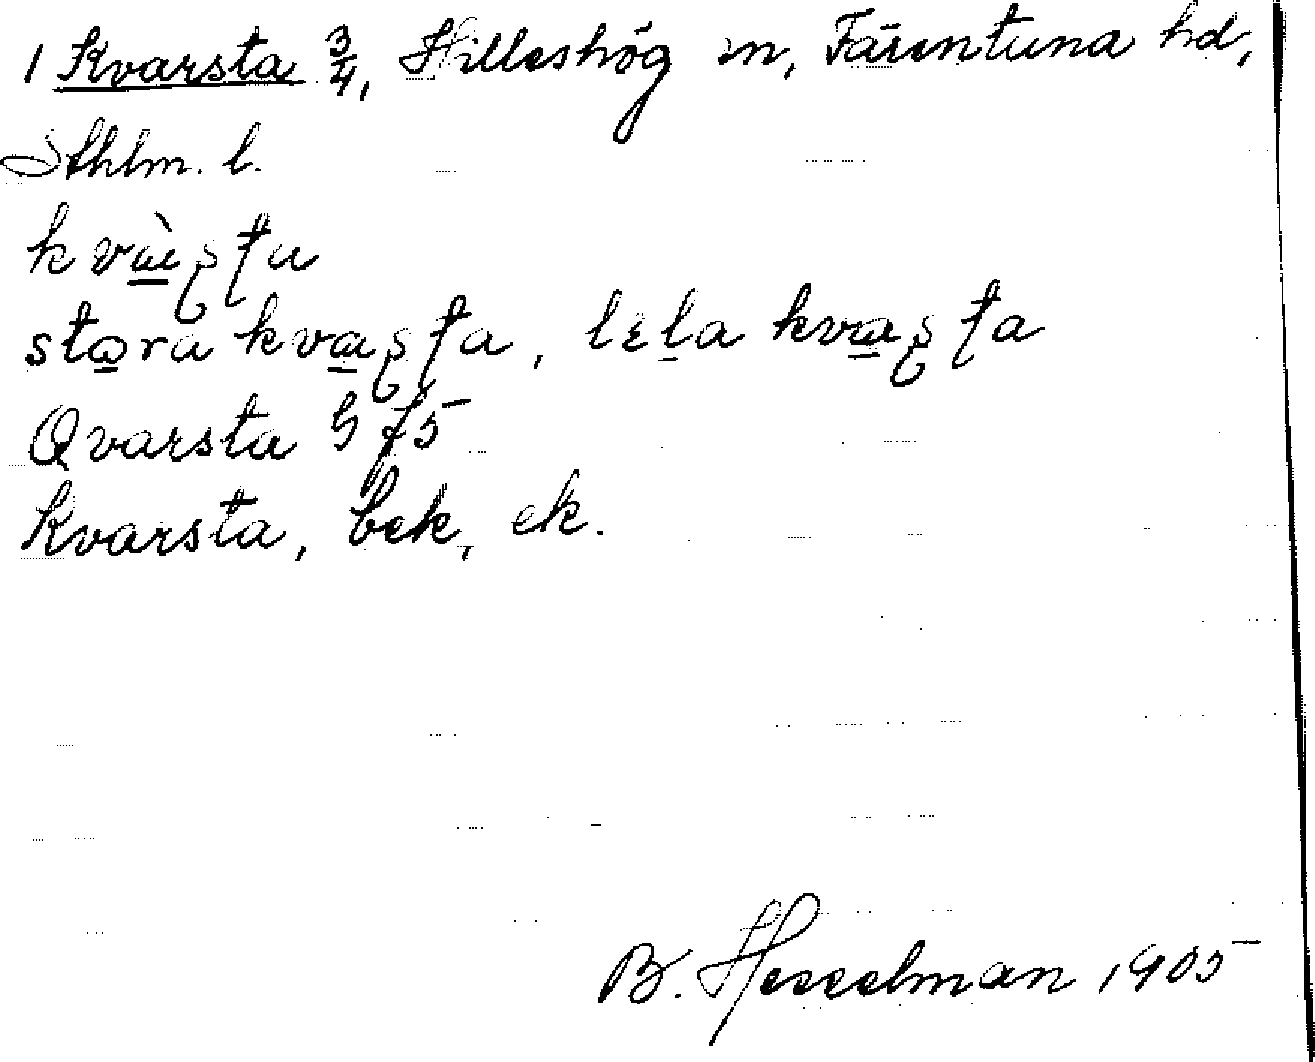 1 Kvarsta 3/4, Hilleshög sn, Färentuna hd,
Sthlm. l.
kvàʂʈa
stɷra kvaʂʈa, lɛla kvaʂʈa
Qvarsta G f5
Kvarsta, bek, ek.
B. Hesselman 1905